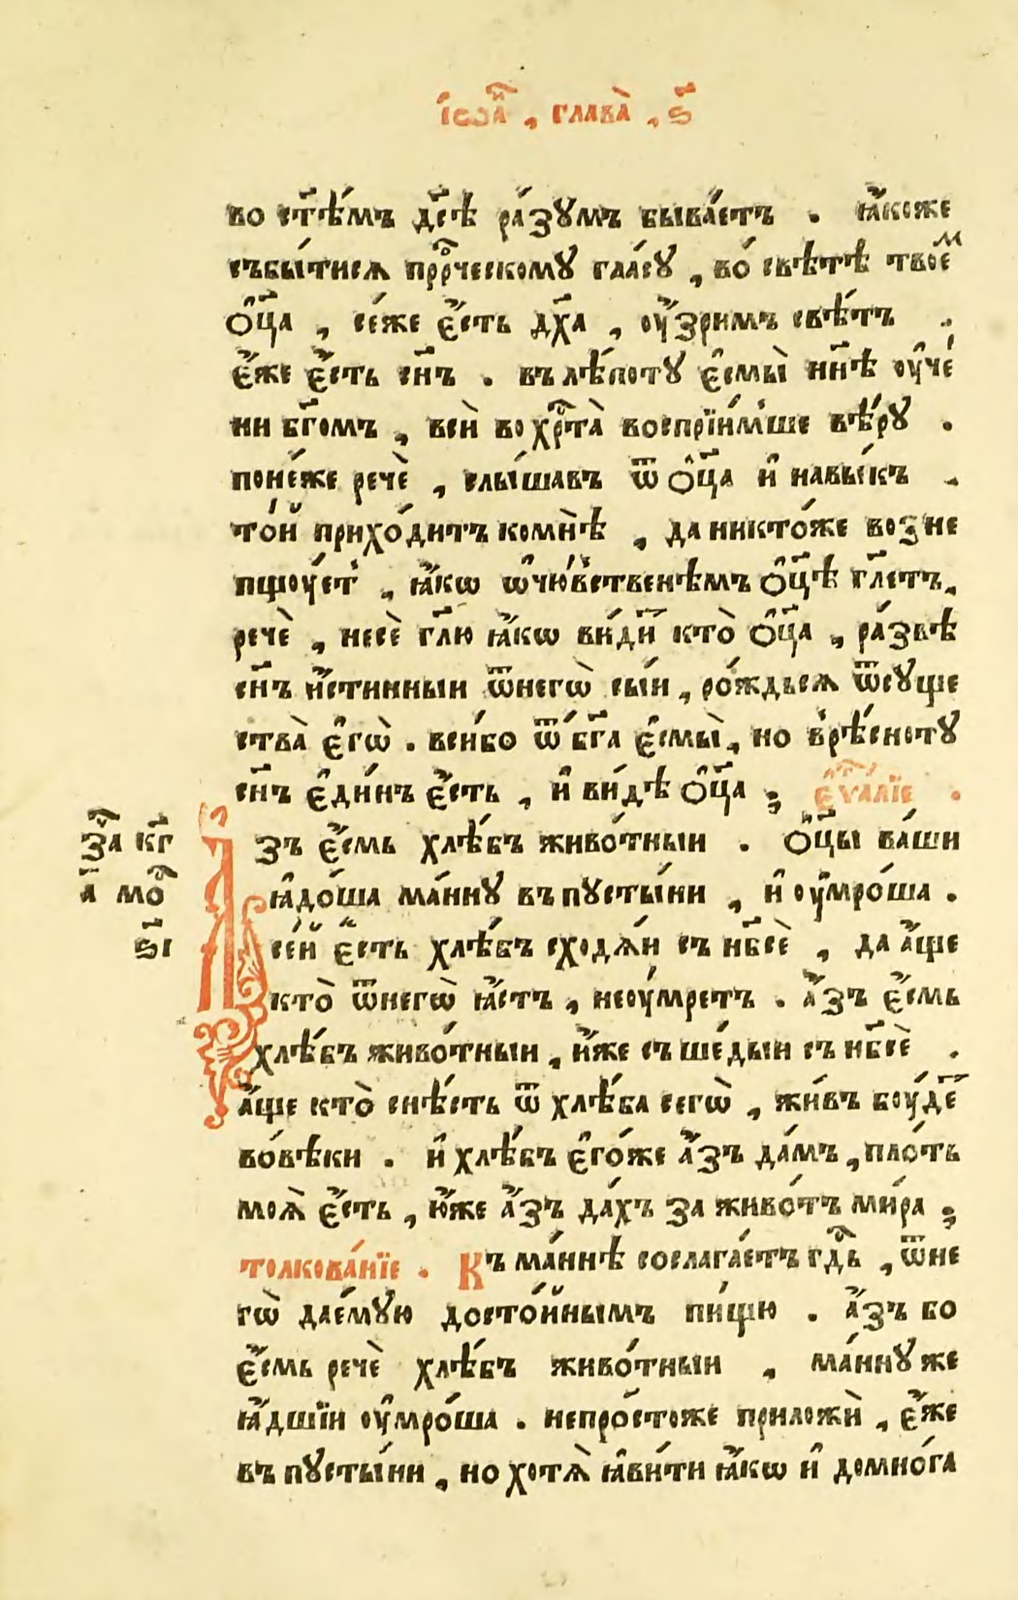 і҆ѡа́н , глава̀ , ѕ҃
во ст҃ѣ́мъ дс҃ѣ ра́зꙋмъ быва́етъ . ꙗ҆́коже
събы́тисѧ прⷪ҇рческомꙋ гла́сꙋ , во́ свѣтѣ твое́м
ѻ҆ц҃а , се́же є҆́сть дх҃а , ᲂу҆́зримъ свѣ́тъ .
є҆́же є҆́сть сн҃ъ . въ лѣ́потꙋ є҆смы̀ нн҃ѣ ᲂу҆че́
ни бг҃омъ , всѝ во хрⷭ҇та̀ воспрїи́мше вѣ́рꙋ .
поне́же речѐ , слы́шавъ ѿ ѻ҆ц҃а и҆ навы́къ .
то́й прихо́дитъ комнѣ̀ , да никто́же возне
пщꙋ́ет , ꙗ҆́кѡ ѡ҆чю́вственѣмъ ѻ҆ц҃ѣ гл҃етъ ,
речѐ , несѐ гл҃ю ꙗ҆́кѡ ви́дѣ кто̀ ѻ҆ц҃а , ра́звѣ
сн҃ъ и҆́стинныи ѿнегѡ̀ сы́и , ро́ждьсѧ ѿсꙋще
ства̀ є҆гѡ̀ . вси́бо ѿ бг҃а є҆смы̀ , но врѣ́снотꙋ
сн҃ъ є҆ди́нъ є҆́сть , и҆ ви́дѣ ѻ҆ц҃а ; є҆ѵⷢ҇алїе .
Азъ є҆́смь хлѣ́бъ живо́тныи . ѻ҆ц҃ы ва́ши
за̀ кг҃
а҃ мѡ
ѕ҃і
ꙗ҆до́ша ма́ннꙋ въ пꙋсты́ни , и҆ ᲂу҆мро́ша .
се́й є҆́сть хлѣ́бъ сходѧ́и съ нб҃сѐ , да а҆́ще
кто̀ ѿнегѡ̀ ꙗ҆́стъ , неᲂу́мретъ . а҆́зъ є҆́смь
хлѣ́бъ живо́тныи , и҆́же съше́дыи съ нб҃сѐ .
а҆́ще кто̀ снѣ́сть ѿ хлѣ́ба сегѡ̀ , жи́въ бꙋ́дет
во́вѣки . и҆ хлѣ́бъ є҆го́же а҆́зъ да́мъ , пло́ть
моѧ̀ є҆́сть , ю҆́же а҆́зъ да́хъ за живо́тъ ми́ра ;
толкова́нїе . Къ ма́ннѣ сослага́етъ гдⷭ҇ь , ѿне
гѡ̀ дае́мꙋю досто́йнымъ пи́щю . а҆́зъ бо
є҆́смь речѐ хлѣ́бъ живо́тныи , ма́ннꙋ же
ꙗ҆́дшїи ᲂу҆мро́ша . непро́стоже приложѝ , є҆́же
въ пꙋсты́ни , но хотѧ̀ ꙗ҆ви́ти ꙗ҆́кѡ и҆ домно́га